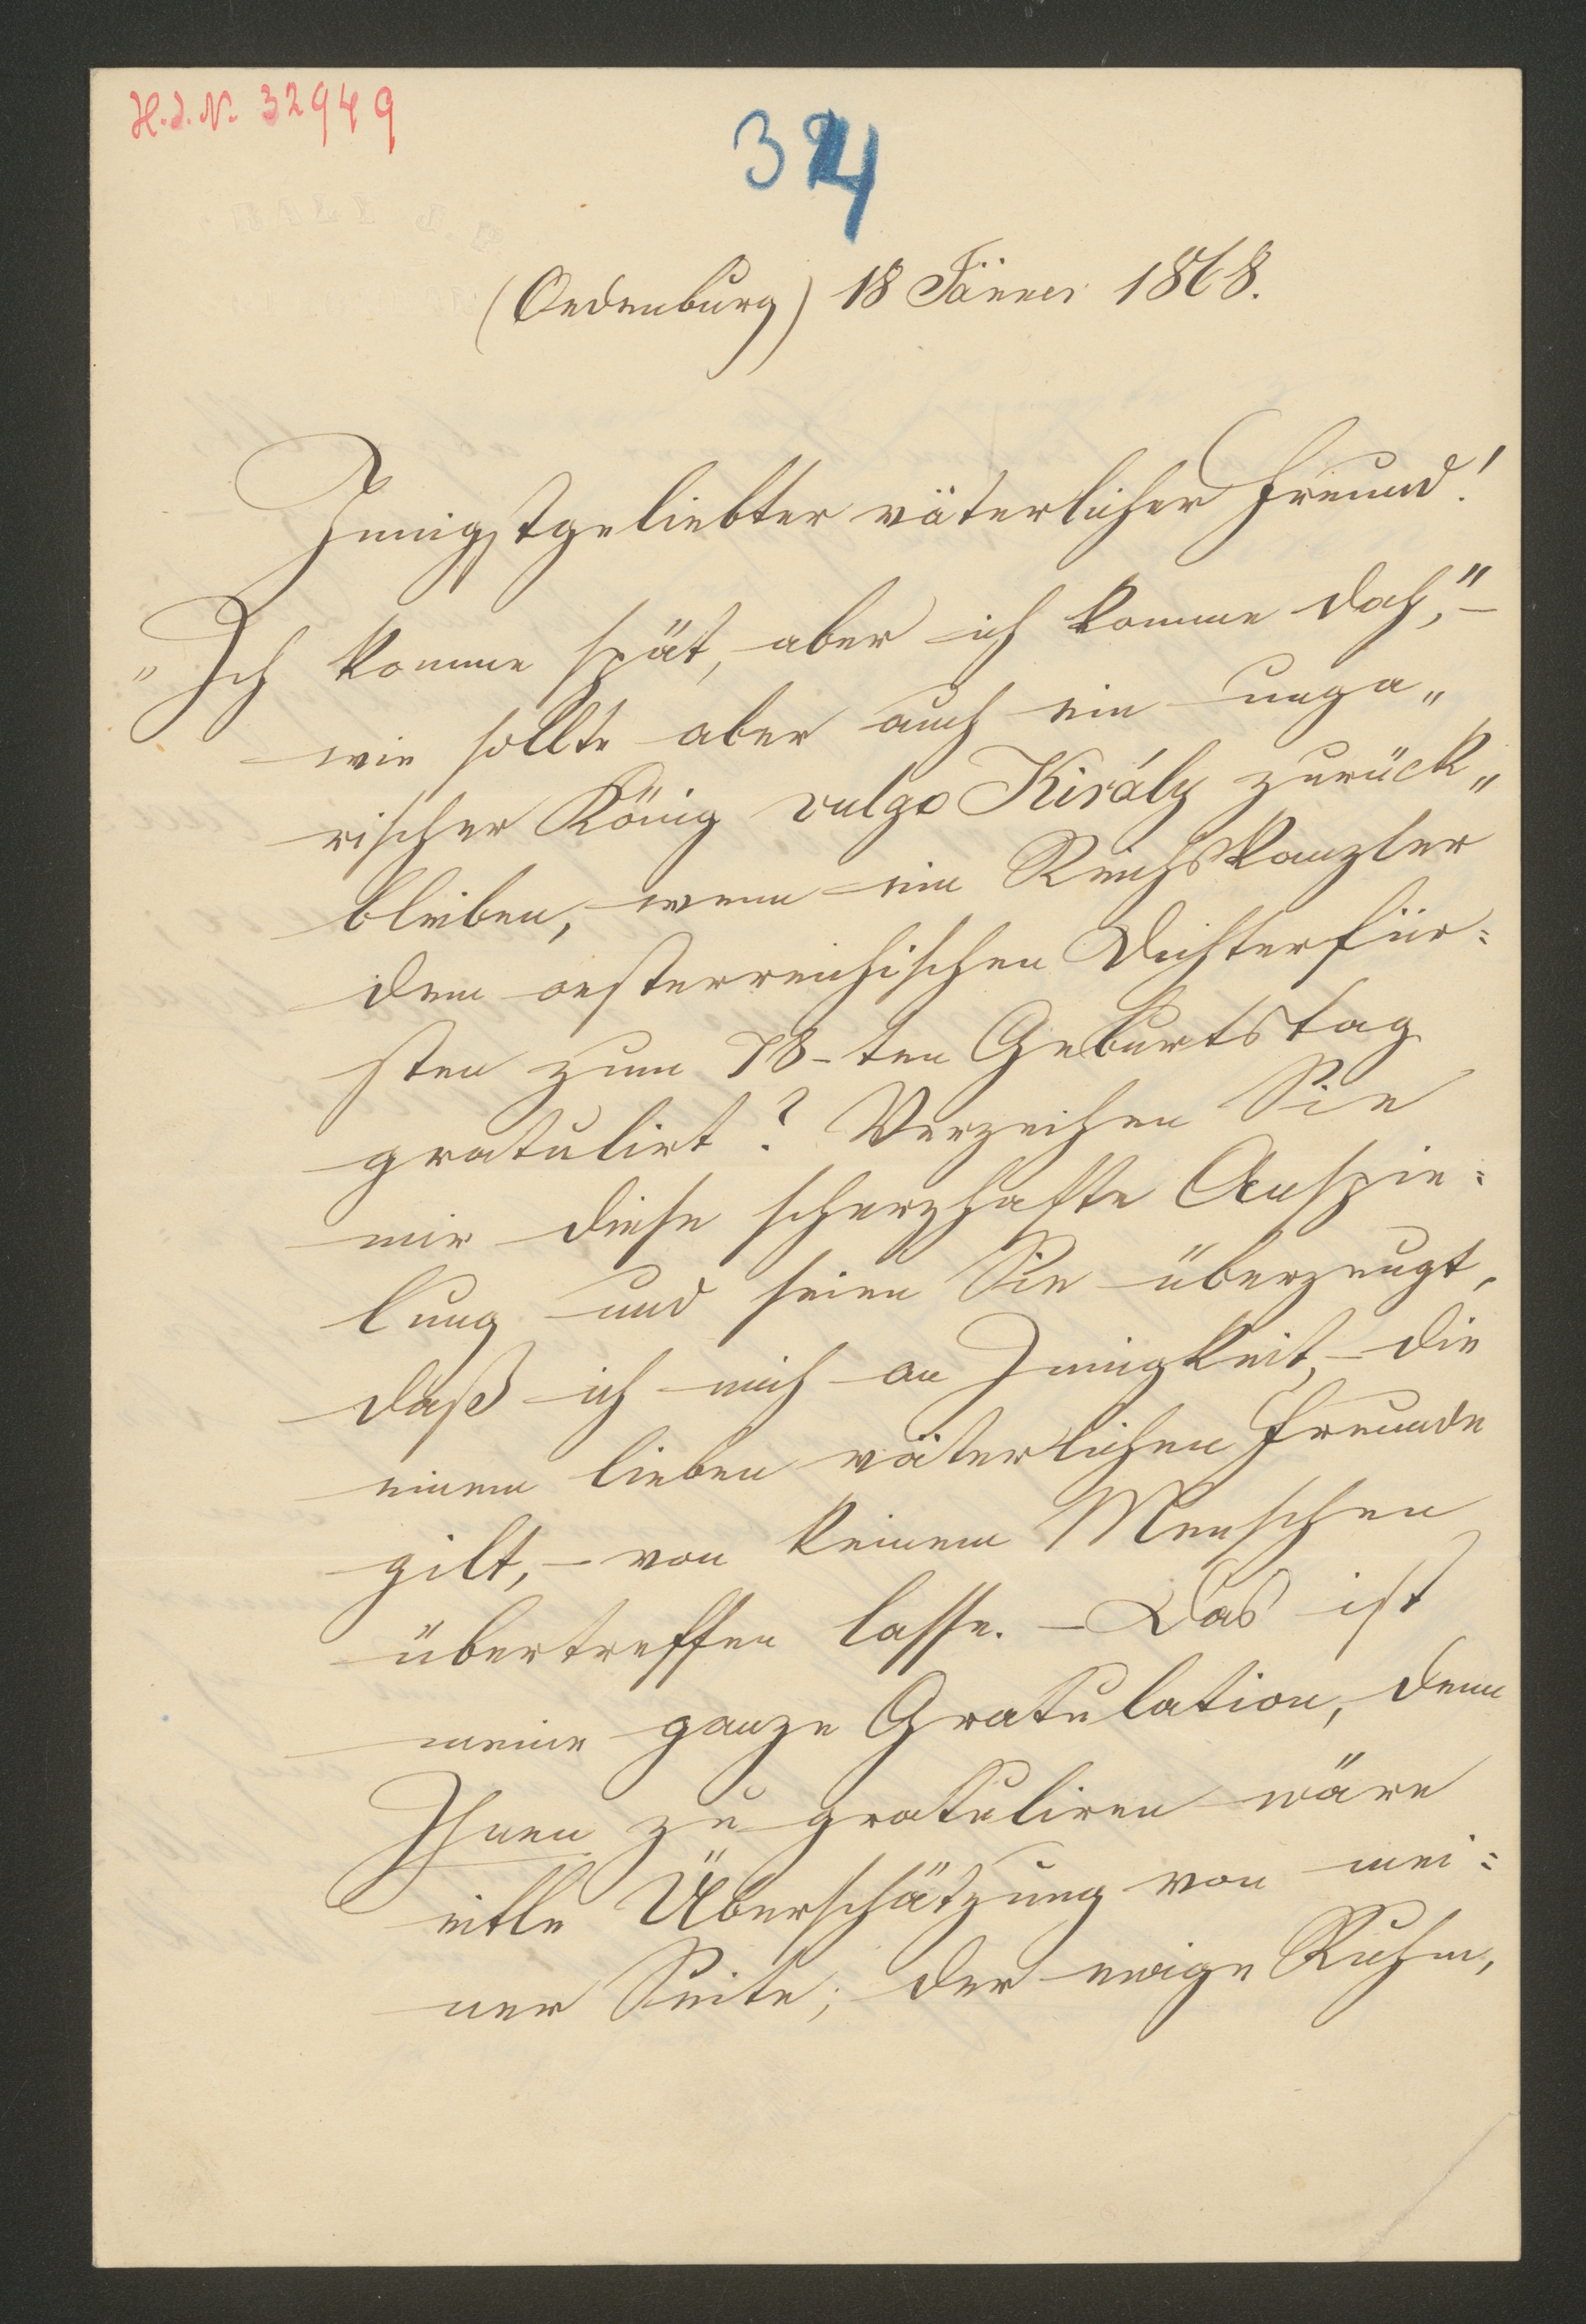 H.I.N. 32949
324
(Oedenburg) 18 Jänner 1868.
Innigstgeliebter väterlicher Freund!
"Ich komme spät, aber ich komme doch," –
wie sollte aber auch ein unga„
rischer König vulgo Király zurück„
bleiben, wenn ein Reichskanzler
dem oesterreichischen Dichterfür=
sten zum 78-ten Geburtstag
gratulirt? Verzeihen Sie
mir diese scherzhafte Anspie=
lung und seien Sie überzeugt,
daß ich mich an Innigkeit, – die
einem lieben väterlichen Freunde
gilt, – von keinem Menschen
übertreffen lasse. – Das ist
meine ganze Gratulation, denn
Ihnen zu gratuliren wäre
eitle Überschätzung von mei=
ner Seite; der ewige Ruhm,